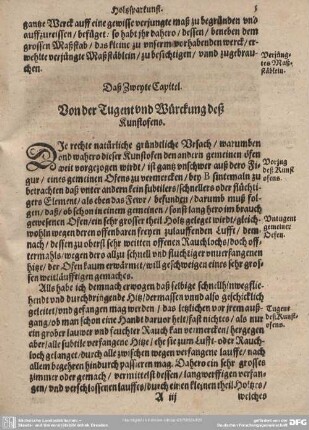 Holtzsparkunst. 5
gantze Werck auff eine gewisse verjungte maß zu begründen vnd
auffzureissen / befüget. so habt jhr dahero / dessen / beneben dem
grossen Maßstab / das kleine zu vnserm vorhabenden werck / er-
wehlte verjüngte Maßstäblein / zu besichtigen / vnnd zugebrau-
chen.
Verjüng-
tes Maß-
stäblein.
Daß Zweyte Capitel.
Von der Tugent vnd Würckung deß
Kunstofens.
Die rechte natürliche gründtliche Vrsach / warumben
vnd wahero dieser Kunstofen den andern gemeinen öfen
weit vorgezogen wird / ist gantz vnschwer auß dero Fi-
gur / eines gemeinen Ofens zu vermercken / bey B sintemaln zu
betrachten daß vnter andern kein subtilers / schnellers oder flüchti-
gers Element / als eben das Fewr / befunden / darumb muß fol-
gen / daß / ob schon in einem gemeinen / sonst lang hero im brauch
gewesenen Ofen / ein sehr grosser theil Holtz geleget wird / gleich-
wohln wegen deren offenbaren freyen zulauffenden Lufft / dem-
nach / dessen zu oberst sehr weitten offenen Rauchlochs / doch off-
termahls / wegen ders allzu schnell vnd flüchtiger vnuerfangenen
hitze / der Ofen kaum erwärmet / will geschweigen eines sehr gros-
sen weitläufftigen gemaches.
Vorzug
deß Kunst
ofens.
Vntugent
gemeiner
Oefen.
Alls habe ich demnach erwogen daß selbige schnellhinwegflie-
hendt vnd durchdringende Hitz / dermassen vnnd also geschicklich
geleitet / vnd gefangen mag werden / das letztlichen vor jrem auß-
gang / ob man schon eine Handt darüber helt / fast nichtes / als nur
ein grober lauwer vnd feuchter Rauch kan vermercken / hergegen
aber / alle subtile verfangene Hitze / ehe sie zum Lufft- oder Rauch-
loch gelanget / durch alle zwischen wegen verfangene lauffe / nach
allem begehren hindurch passieren mag. Dahero ein sehr grosses
zimmer oder gemach / vermittelst dessen / langwerffigen verfang-
gen / vnd verschlossenen lauffes / durch einen kleinen theil Holtzes /
Tugent
deß Kunst-
ofens.
A iij welches